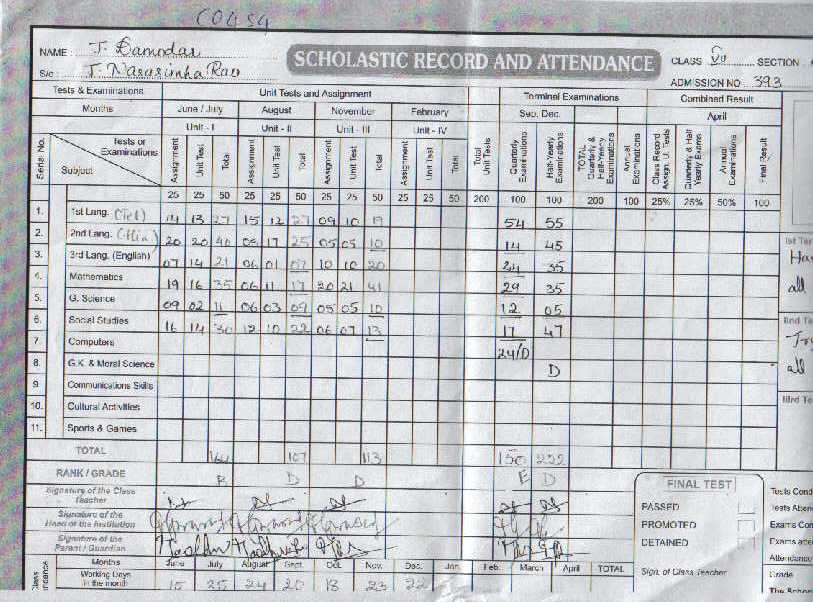 C0454
NAME : T. Damodar
SCHOLASTIC RECORD AND ATTENDANCE
CLASS VII SECTION
S/o : T. Narasimha Rao
ADMISSION NO 393
Tests & Examinations Unit Tests and Assignment Terminal Examinations Combined Result
Months June / July August November February Sep. Dec. April
Unit - I Unit - II Unit - III Unit - IV
Serial No. Tests or Examinations Subject Assignment Unit Test Total Assignment Unit Test Total Assignment Unit Test Total Assignment Unit Test Total Total Unit Tests Quarterly Examinations Half-Yearly Examinations TOTAL Quarterly & Half-Yearly Examinations Annual Examinations Class Record Assign. U. Tests Quarterly & Half Yearly Exams Annual Examinations Final Result
25 25 50 25 25 50 25 25 50 25 25 50 200 100 100 200 100 25% 25% 50% 100
1. 1st Lang. (Tel) 14 13 27 15 12 27 09 10 19 54 55
2. 2nd Lang. (Hin) 20 20 40 08 17 25 05 05 10 14 45
3. 3rd Lang. (English) 07 14 21 06 01 07 10 10 20 24 35
4. Mathematics 19 16 35 06 11 17 20 21 41 29 35
5. G. Science 09 02 11 06 03 09 05 05 10 12 05
6. Social Studies 16 14 30 12 10 22 06 07 13 17 47
7. Computers 24/D
8. G.K. & Moral Science D
9. Communications Skills
10. Cultural Activities
11. Sports & Games
TOTAL 164 107 113 150 222
RANK / GRADE B D D E D
Signature of the Class Teacher
Signature of the Head of the Institution
Signature of the Parent / Guardian
Months June July August Sept. Oct. Nov. Dec. Jan. Feb. March April TOTAL
Working Days in the month 15 25 24 20 18 23 22
FINAL TEST
PASSED
PROMOTED
DETAINED
Sign. of Class Teacher
Ist Ter
all
IInd Te
all
IIIrd Te
Tests Cond
Tests Atten
Exams Con
Exams atte
Attendance
Grade
The School